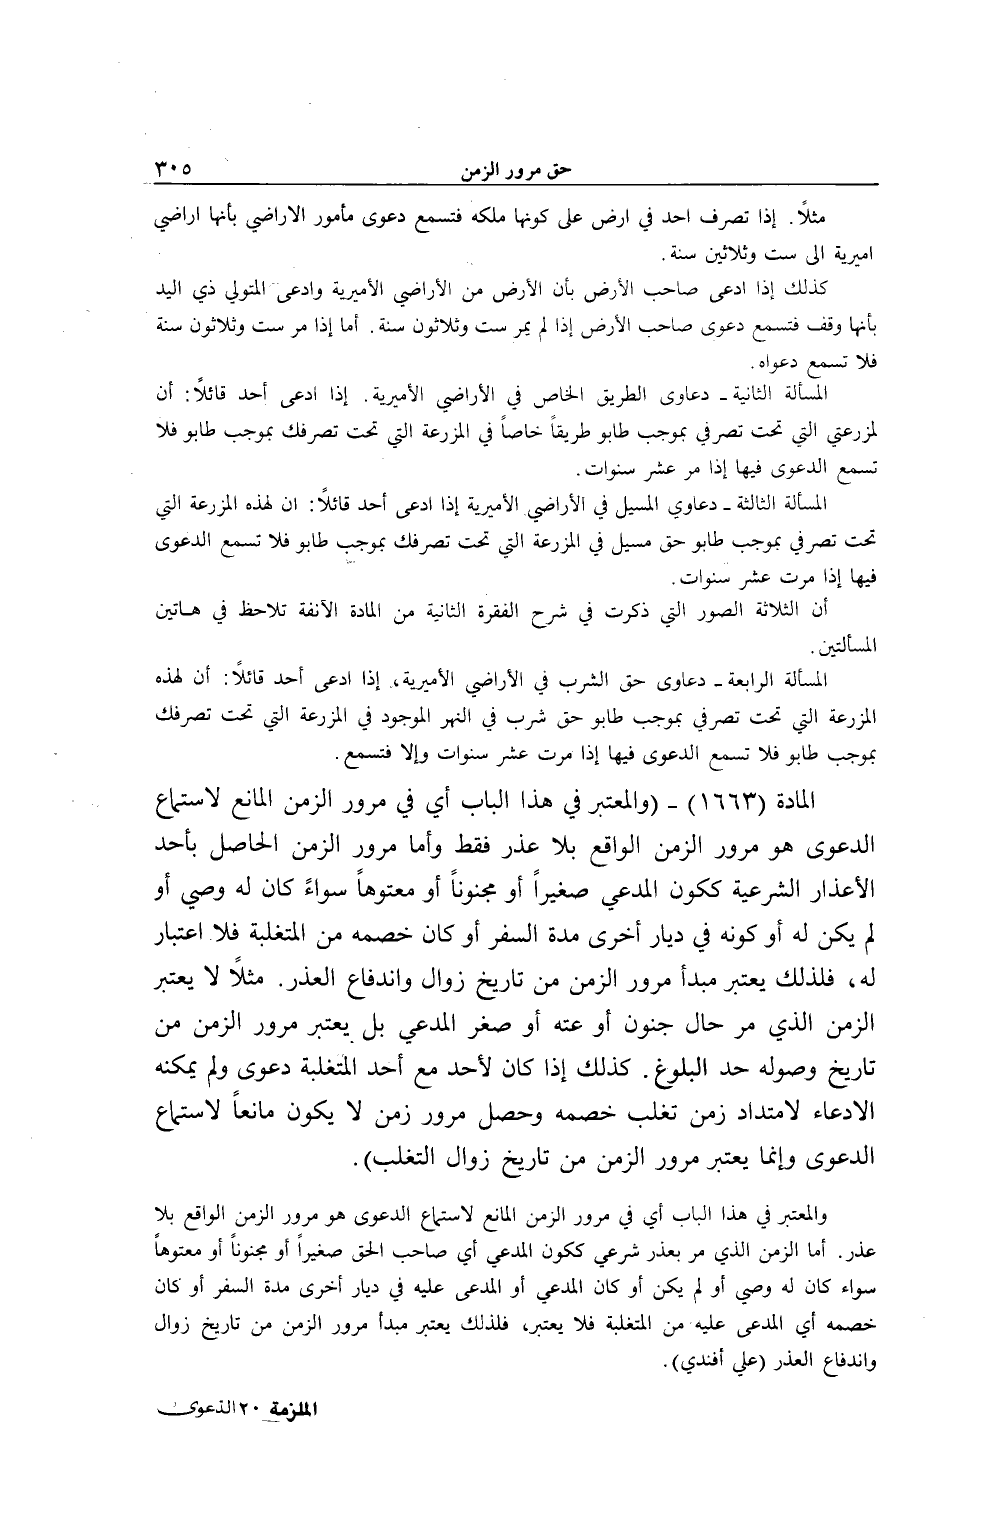 حق مرور الزمن ٣٠٥
مثلاً. إذا تصرف احد في ارض على كونها ملكه فتسمع دعوى مأمور الاراضي بأنها اراضي
اميرية الى ست وثلاثين سنة.
كذلك إذا ادعى صاحب الأرض بأن الأرض من الأراضي الأميرية وادعى المتولي ذي اليد
بأنها وقف فتسمع دعوى صاحب الأرض إذا لم يمر ست وثلاثون سنة. أما إذا مر ست وثلاثون سنة
فلا تسمع دعواه.
المسألة الثانية ـ دعاوى الطريق الخاص في الأراضي الأميرية. إذا ادعى أحد قائلاً: أن
لمزرعتي التي تحت تصرفي بموجب طابو طريقاً خاصاً في المزرعة التي تحت تصرفك بموجب طابو فلا
تسمع الدعوى فيها إذا مر عشر سنوات.
المسألة الثالثة ـ دعاوي المسيل في الأراضي الأميرية إذا ادعى أحد قائلاً: ان لهذه المزرعة التي
تحت تصرفي بموجب طابو حق مسيل في المزرعة التي تحت تصرفك بموجب طابو فلا تسمع الدعوى
فيها إذا مرت عشر سنوات.
أن الثلاثة الصور التي ذكرت في شرح الفقرة الثانية من المادة الآنفة تلاحظ في هاتين
المسألتين.
المسألة الرابعة ـ دعاوى حق الشرب في الأراضي الأميرية، إذا ادعى أحد قائلاً: أن لهذه
المزرعة التي تحت تصرفي بموجب طابو حق شرب في النهر الموجود في المزرعة التي تحت تصرفك
بموجب طابو فلا تسمع الدعوى فيها إذا مرت عشر سنوات وإلا فتسمع.
المادة (١٦٦٣) ـ (والمعتبر في هذا الباب أي في مرور الزمن المانع لاستماع
الدعوى هو مرور الزمن الواقع بلا عذر فقط وأما مرور الزمن الحاصل بأحد
الأعذار الشرعية ككون المدعي صغيراً أو مجنوناً أو معتوهاً سواءً كان له وصي أو
لم يكن له أو كونه في ديار أخرى مدة السفر أو كان خصمه من المتغلبة فلا اعتبار
له، فلذلك يعتبر مبدأ مرور الزمن من تاريخ زوال واندفاع العذر. مثلاً لا يعتبر
الزمن الذي مر حال جنون أو عته أو صغر المدعي بل يعتبر مرور الزمن من
تاريخ وصوله حد البلوغ. كذلك إذا كان لأحد مع أحد المتغلبة دعوى ولم يمكنه
الادعاء لامتداد زمن تغلب خصمه وحصل مرور زمن لا يكون مانعاً لاستماع
الدعوى وإنما يعتبر مرور الزمن من تاريخ زوال التغلب).
والمعتبر في هذا الباب أي في مرور الزمن المانع لاستماع الدعوى هو مرور الزمن الواقع بلا
عذر. أما الزمن الذي مر بعذر شرعي ككون المدعي أي صاحب الحق صغيراً أو مجنوناً أو معتوهاً
سواء كان له وصي أو لم يكن أو كان المدعي أو المدعى عليه في ديار أخرى مدة السفر أو كان
خصمه أي المدعى عليه من المتغلبة فلا يعتبر، فلذلك يعتبر مبدأ مرور الزمن من تاريخ زوال
واندفاع العذر (علي أفندي).
الملزمة ٢٠ الدعوى